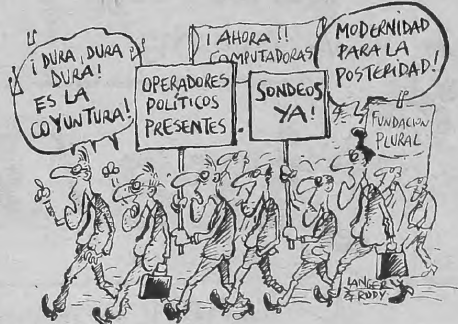 ¡DURA, DURA
DURA!
ES LA
COYUNTURA!
OPERADORES
POLÍTICOS
PRESENTES.
¡AHORA!!
COMPUTADORAS
SONDEOS
YA!
MODERNIDAD
PARA LA
POSTERIDAD!
FUNDACION
PLURAL
LANGER
& RUDY